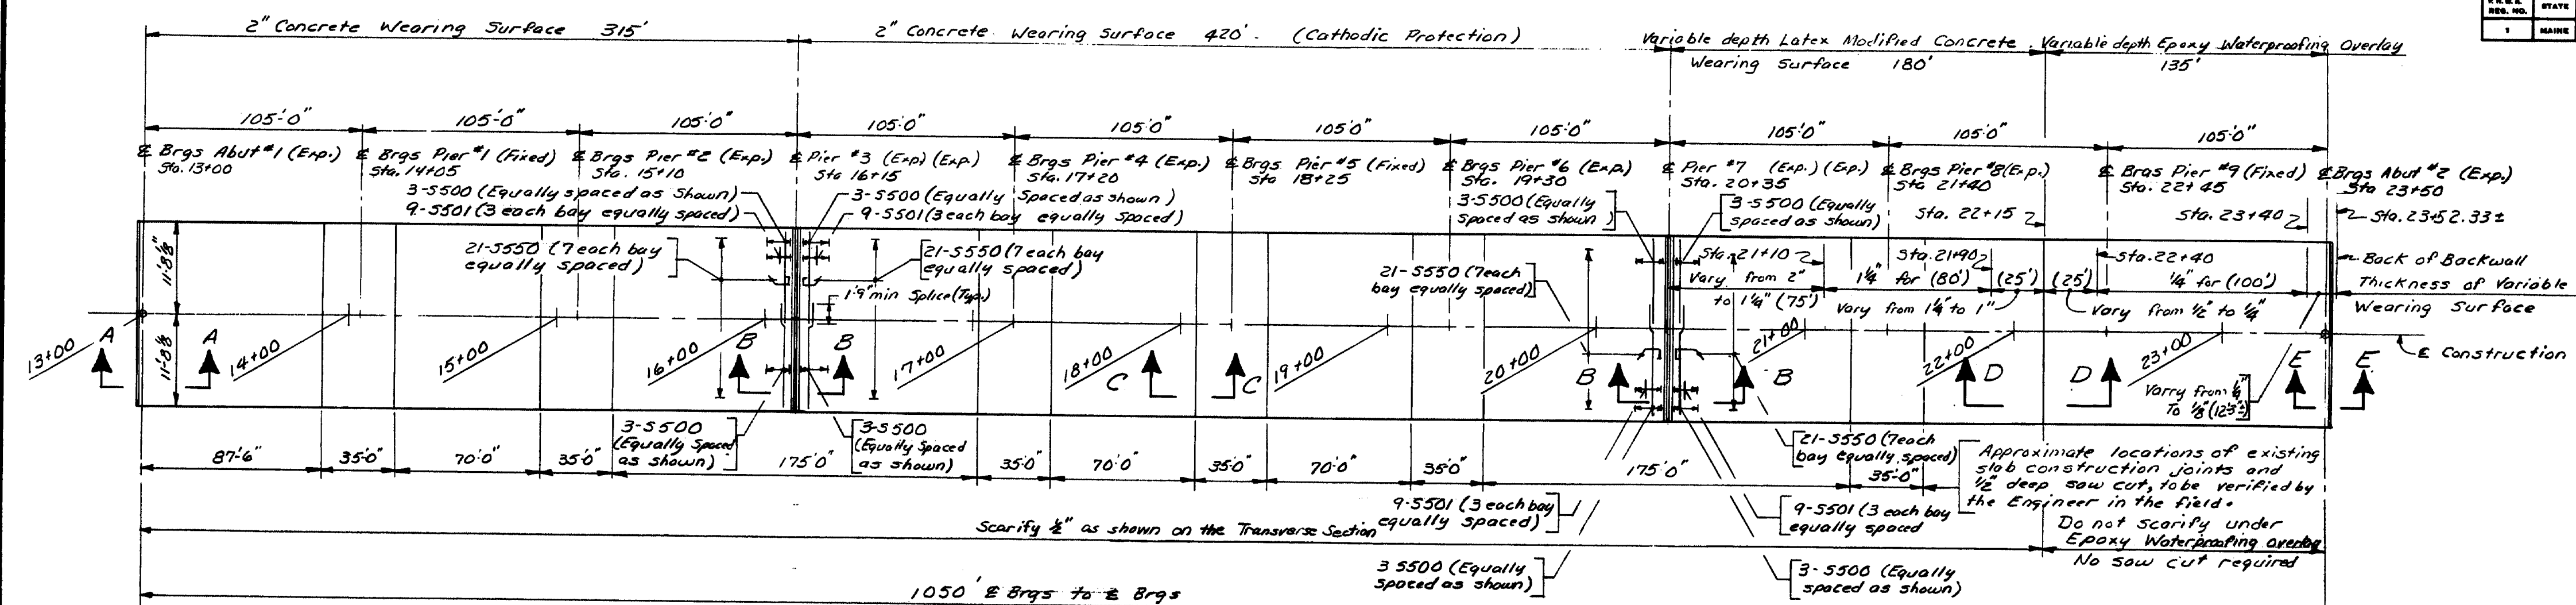 REG. NO.
STATE
1
MAINE
2" Concrete Wearing Surface 315'
2" Concrete Wearing Surface 420' (Cathodic Protection)
Variable depth Latex Modified Concrete
Wearing Surface 180'
Variable depth Epoxy Waterproofing Overlay
135'
105'-0" 105'-0" 105'-0" 105'-0" 105'-0" 105'-0" 105'-0" 105'-0" 105'-0" 105'-0"
℄ Brgs Abut #1 (Exp.)
Sta. 13+00
℄ Brgs Pier #1 (Fixed)
Sta. 14+05
℄ Brgs Pier #2 (Exp.)
Sta. 15+10
℄ Pier #3 (Exp) (Exp.)
Sta 16+15
℄ Brgs Pier #4 (Exp.)
Sta. 17+20
℄ Brgs Pier #5 (Fixed)
Sta 18+25
℄ Brgs Pier #6 (Exp)
Sta. 19+30
℄ Pier #7 (Exp.) (Exp.)
Sta. 20+35
℄ Brgs Pier #8 (Exp.)
Sta 21+40
℄ Brgs Pier #9 (Fixed)
Sta. 22+45
℄ Brgs Abut #2 (Exp.)
Sta 23+50
3-S500 (Equally spaced as Shown)
9-S501 (3 each bay equally spaced)
3-S500 (Equally Spaced as shown)
9-S501 (3 each bay equally spaced)
3-S500 (Equally
spaced as shown)
3-S500 (Equally
spaced as shown)
Sta. 22+15
Sta. 23+40
Sta. 23+52.33±
11'-8⅛"
21-S550 (7 each bay
equally spaced)
21-S550 (7 each bay
equally spaced)
1'-9" min Splice (Typ.)
21-S550 (7 each
bay equally spaced)
Sta. 21+10
Sta. 21+90
Sta. 22+40
Vary from 2"
to 1¼" (75')
1¼" for (80')
(25')
(25')
¼" for (100')
Vary from 1¼ to 1"
Vary from ½" to ¼"
Back of Backwall
Thickness of Variable
Wearing Surface
℄ Construction
11'-8⅛"
13+00
A
A
14+00
15+00
16+00
B
B
17+00
18+00
C
C
19+00
20+00
B
21+00
B
22+00
D
D
23+00
Varry from ¼"
To ⅛" (12'3"±)
E
E
3-S500
(Equally Spaced
as shown)
3-S500
(Equally Spaced
as shown)
21-S550 (7 each
bay equally spaced)
87'-6" 35'-0" 70'-0" 35'-0" 175'-0" 35'-0" 70'-0" 35'-0" 70'-0" 35'-0" 175'-0" 35'-0"
Approximate locations of existing
slab construction joints and
½" deep saw cut, to be verified by
the Engineer in the field.
9-S501 (3 each bay
equally spaced)
9-S501 (3 each bay
equally spaced
Scarify ½" as shown on the Transverse Section
Do not scarify under
Epoxy Waterproofing Overlay
No saw cut required
3 S500 (Equally
spaced as shown)
3-S500 (Equally
spaced as shown)
1050' ℄ Brgs to ℄ Brgs